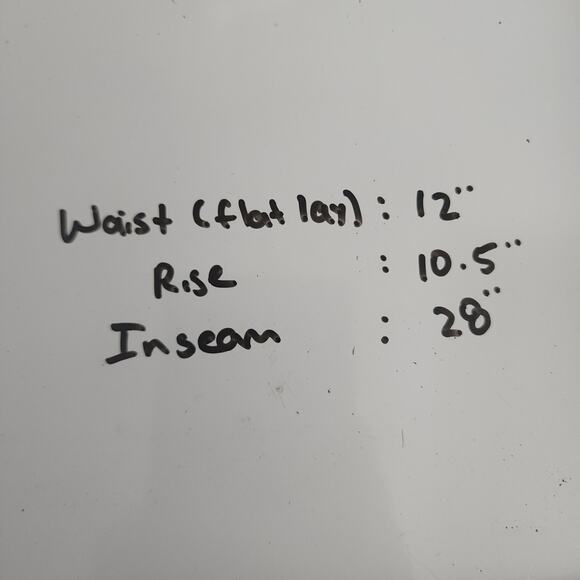 Waist (flat lay) : 12"
Rise : 10.5"
Inseam : 28"